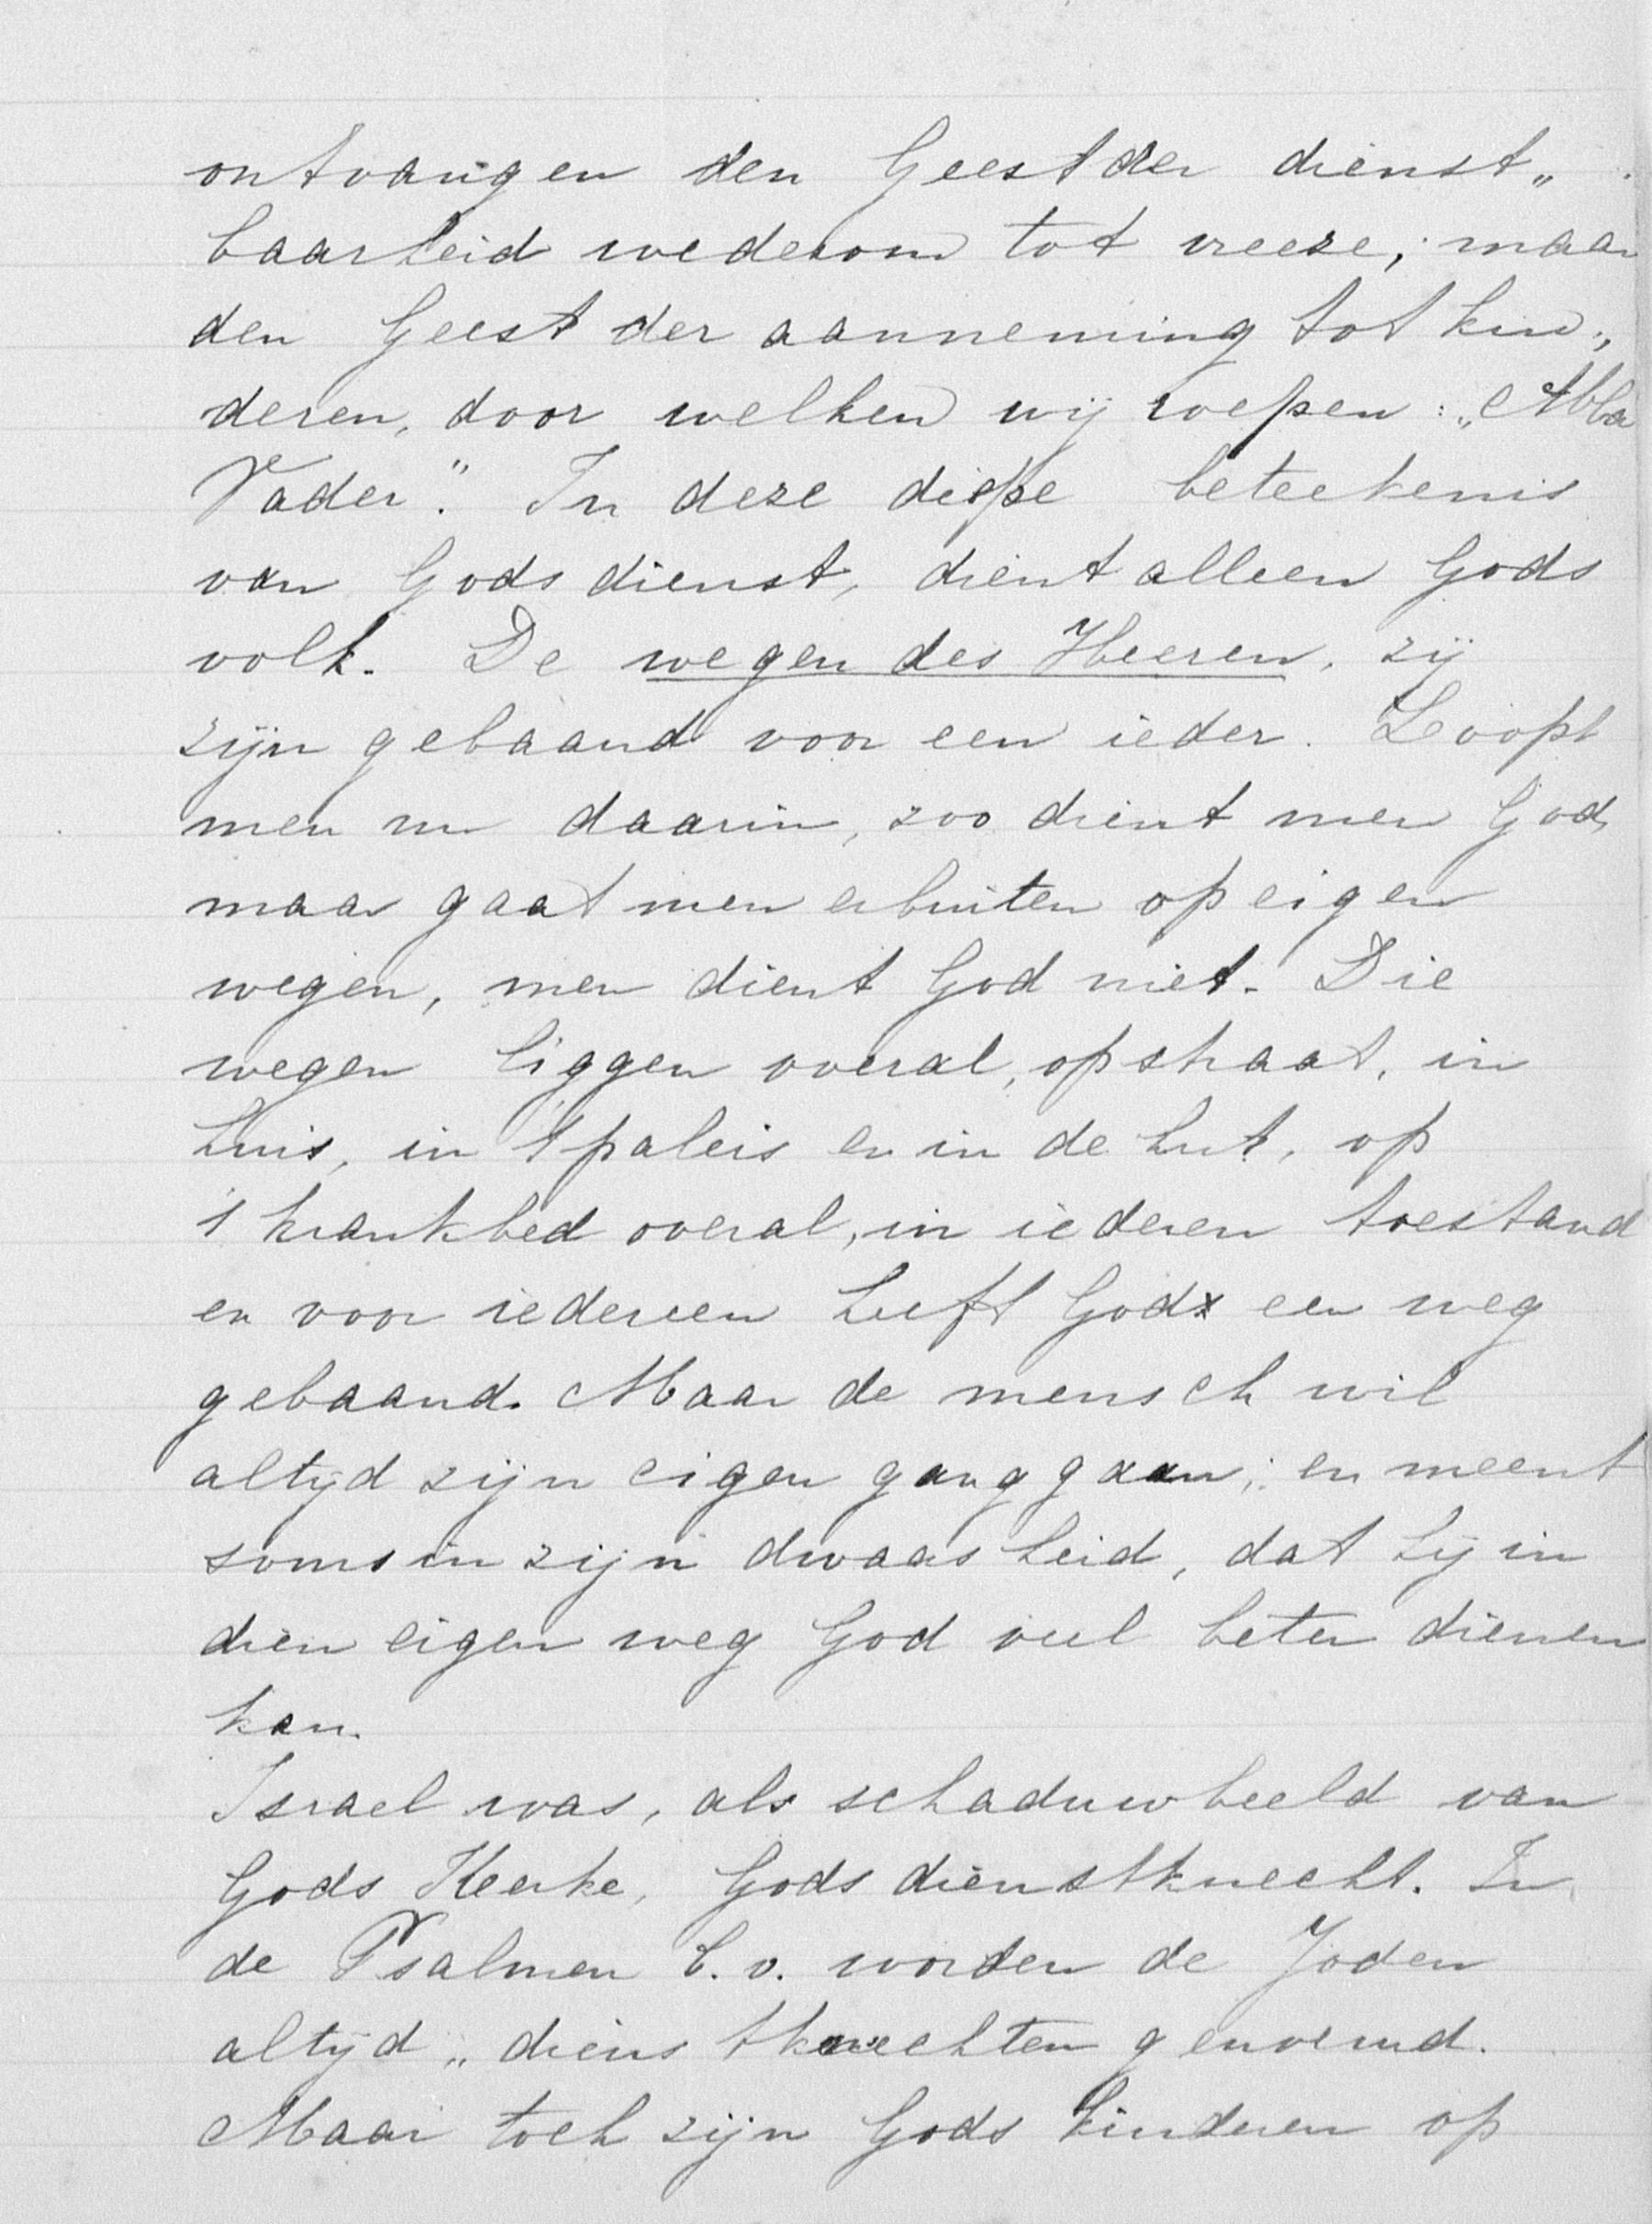 ontvangen den Geest der dienst„
baarheid wederom tot vreeze; maar
den Geest der aanneming tot kin„
deren, door welken wij roepen: „Abba
Vader". In deze diepe beteekenis
van Godsdienst, dient alleen Gods
volk. De wegen des Heeren, zij
zijn gebaand voor een ieder. Loopt
men nu daarin, zoo dient men God,
maar gaat men erbuiten op eigen
wegen, men dient God niet. Die
wegen liggen overal, op straat, in
huis, in 't paleis en in de hut, op
't krankbed overal, in iederen toestand
en voor iedereen heeft God een weg
gebaand. Maar de mensch wil
altijd zijn eigen gang gaan; en meent
soms in zijn dwaasheid, dat hij in
dien eigen weg God veel beter dienen
kan.
Israel was, als schaduwbeeld van
Gods Kerke, Gods dienstknecht. In
de Psalmen b.v. worden de Joden
altijd „dienstknechten genoemd.
Maar toch zijn Gods kinderen op